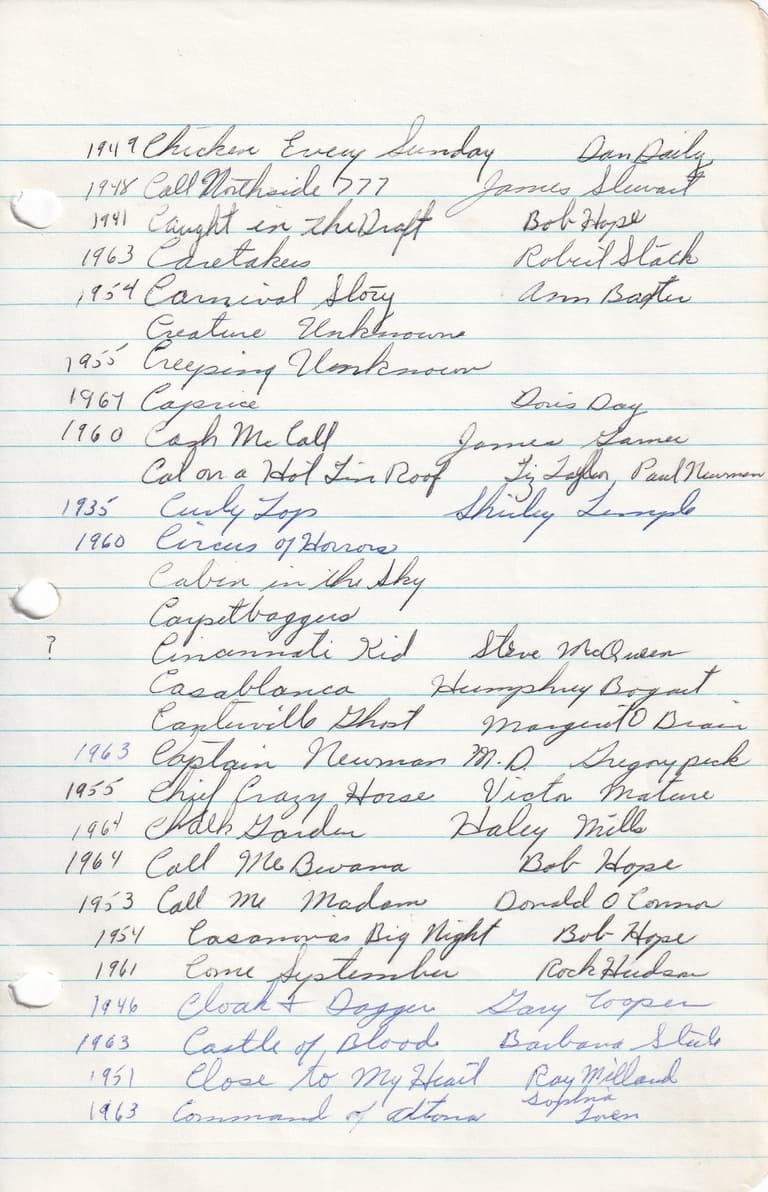 1949 Chicken Every Sunday Dan Daily
1948 Call Northside 777 James Stewart
1941 Caught in the Draft Bob Hope
1963 Caretakers Robert Stack
1954 Carnival Story Ann Baxter
Creature Unknowne
1955 Creeping Unknown
1967 Caprice Doris Day
1960 Cash McCall James Garner
Cat on a Hot Tin Roof Liz Taylor, Paul Newman
1935 Curly Top Shirley Temple
1960 Circus of Horrors
Cabin in the Sky
Carpetbaggers
? Cincannati Kid Steve McQueen
Casablanca Humphrey Bogart
Canterville Ghost Margaret O Brain
1963 Captain Newman M.D. Gregory peck
1955 Chief Crazy Horse Victor Mature
1964 Chalk Garden Haley Mills
1964 Call Me Bwana Bob Hope
1953 Call Me Madam Donald O Connor
1954 Casanovas Big Night Bob Hope
1961 Come September Rock Hudson
1946 Cloak & Dagger Gary Cooper
1963 Castle of Blood Barbara Stele
1951 Close to My Heart Ray Milland
1963 Command of Altona Sophia Loren